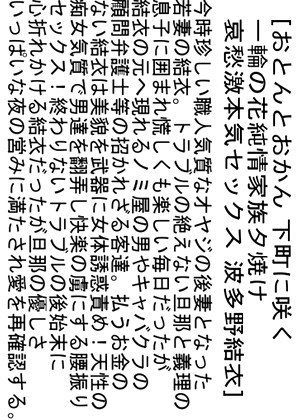 [おとんとおかん 下町に咲く
一輪の花純情家族夕焼け
哀愁激本気セックス 波多野結衣]
今時珍しい職人気質なオヤジの後妻となった
若妻の結衣。トラブルの絶えない旦那と義理の
息子に囲まれ慌しくも楽しい毎日だったが
結衣の元へ現れるノミ屋の男やキャバクラの
顧問弁護士等の招かれざる客達。払うお金の
ない結衣は美貌を武器に女体誘惑責め!天性の
痴女気質で男達を翻弄し快楽の虜にする腰振り
セックス!終わりないトラブルの後始末に
心折れかける結衣だったが旦那の優しさ
いっぱいな夜の営みに満たされ愛を再確認する。